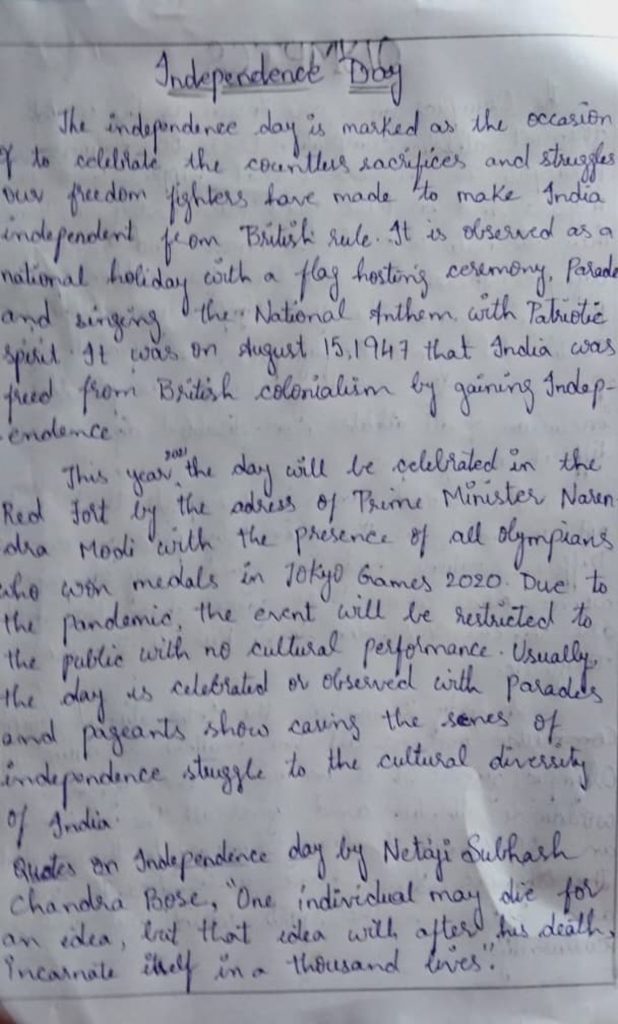 Independence Day
The independence day is marked as the occasion
of to celebrate the countless sacrifices and struggles
our freedom fighters have made to make India
independent from British rule. It is observed as a
national holiday with a flag hosting ceremony, Parade
and singing the National Anthem with Patriotic
spirit. It was on August 15, 1947 that India was
freed from British colonialism by gaining Indep-
endence.
This year 2021 the day will be celebrated in the
Red Fort by the adress of Prime Minister Naren
dra Modi with the presence of all olympians
who won medals in Tokyo Games 2020. Due to
the pandemic, the event will be restricted to
the public with no cultural performance. Usually,
the day is celebrated or observed with Parades
and pageants show casing the scenes of
independence struggle to the cultural diversity
of India.
Quotes on Independence day by Netaji Subhash
Chandra Bose, "One individual may die for
an idea, but that idea will after his death,
incarnate itself in a thousand lives".